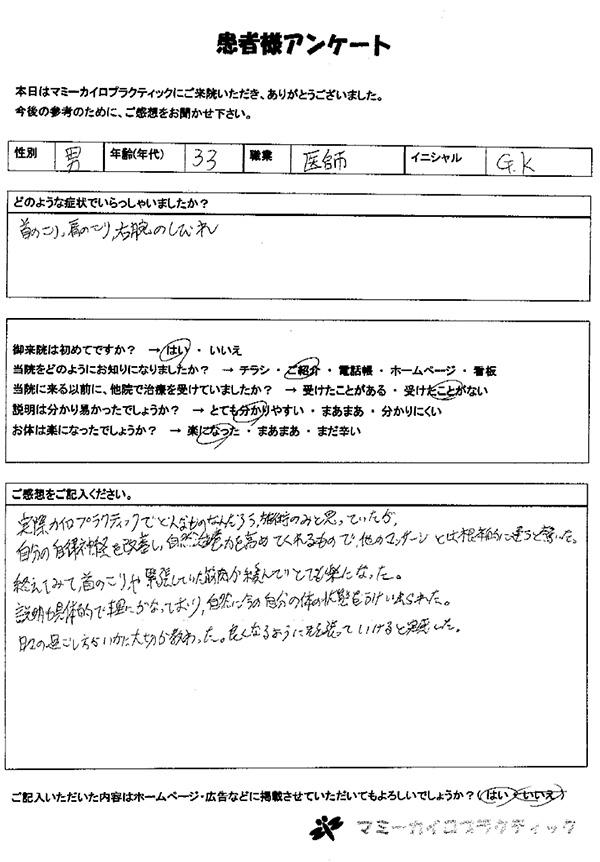 患者様アンケート
本日はマミーカイロプラクティックにご来院いただき、ありがとうございました。
今後の参考のために、ご感想をお聞かせ下さい。
性別 男 年齢(年代) 33 職業 医師 イニシャル G.K
どのような症状でいらっしゃいましたか？
首のこり、肩のこり、右腕のしびれ
御来院は初めてですか？ → はい ・ いいえ
当院をどのようにお知りになりましたか？ → チラシ ・ ご紹介 ・ 電話帳 ・ ホームページ ・ 看板
当院に来る以前に、他院で治療を受けていましたか？ → 受けたことがある ・ 受けたことがない
説明は分かり易かったでしょうか？ → とても分かりやすい ・ まあまあ ・ 分かりにくい
お体は楽になったでしょうか？ → 楽になった ・ まあまあ ・ まだ辛い
ご感想をご記入ください。
実際カイロプラクティックでどんなものなんだろう、施術のみと思っていたが、
自分の自律神経を改善し、自然治癒力を高めてくれるもので、他のマッサージとは根本的に違うと驚いた。
終えてみて、首のこりや緊張していた筋肉が緩んでいてとても楽になった。
説明も具体的で理にかなっており、自然に今の自分の体の状態を受け入れられた。
日々の過ごし方がいかに大切か教わった。良くなるように
ご記入いただいた内容はホームページ・広告などに掲載させていただいてもよろしいでしょうか？( はい ・ いいえ )
マミーカイロプラクティック